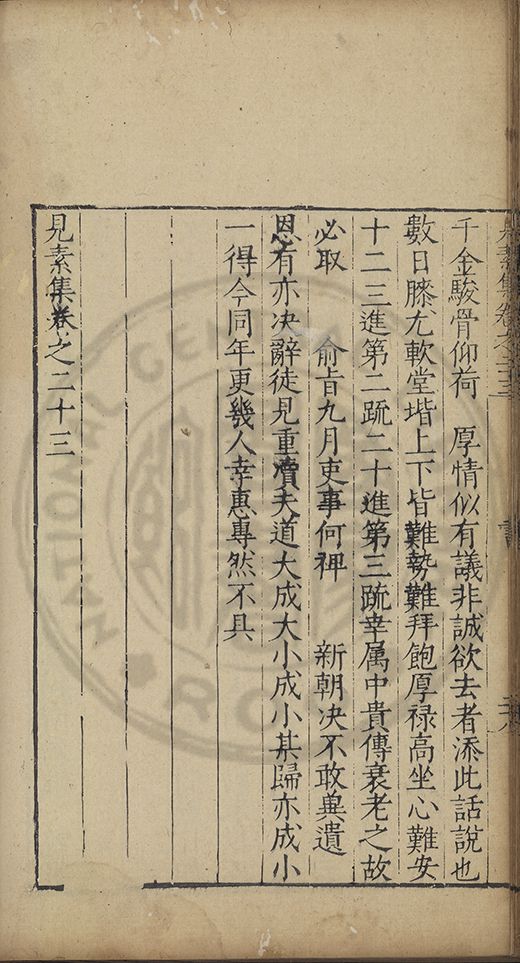 千金駿骨仰荷　厚情似有議非誠欲去者添此話說也
數日膝尤軟堂堦上下皆難勢難拜飽厚禄高坐心難安
十二三進第二䟽二十進第三䟽幸属中貴傳衰老之故
必取　俞旨九月吏事何裨　　新朝决不敢冀遺
恩有亦决辭徒見重凟夫道大成大小成小其歸亦成小
一得今同年更幾人幸惠專然不具
見素集卷之二十三